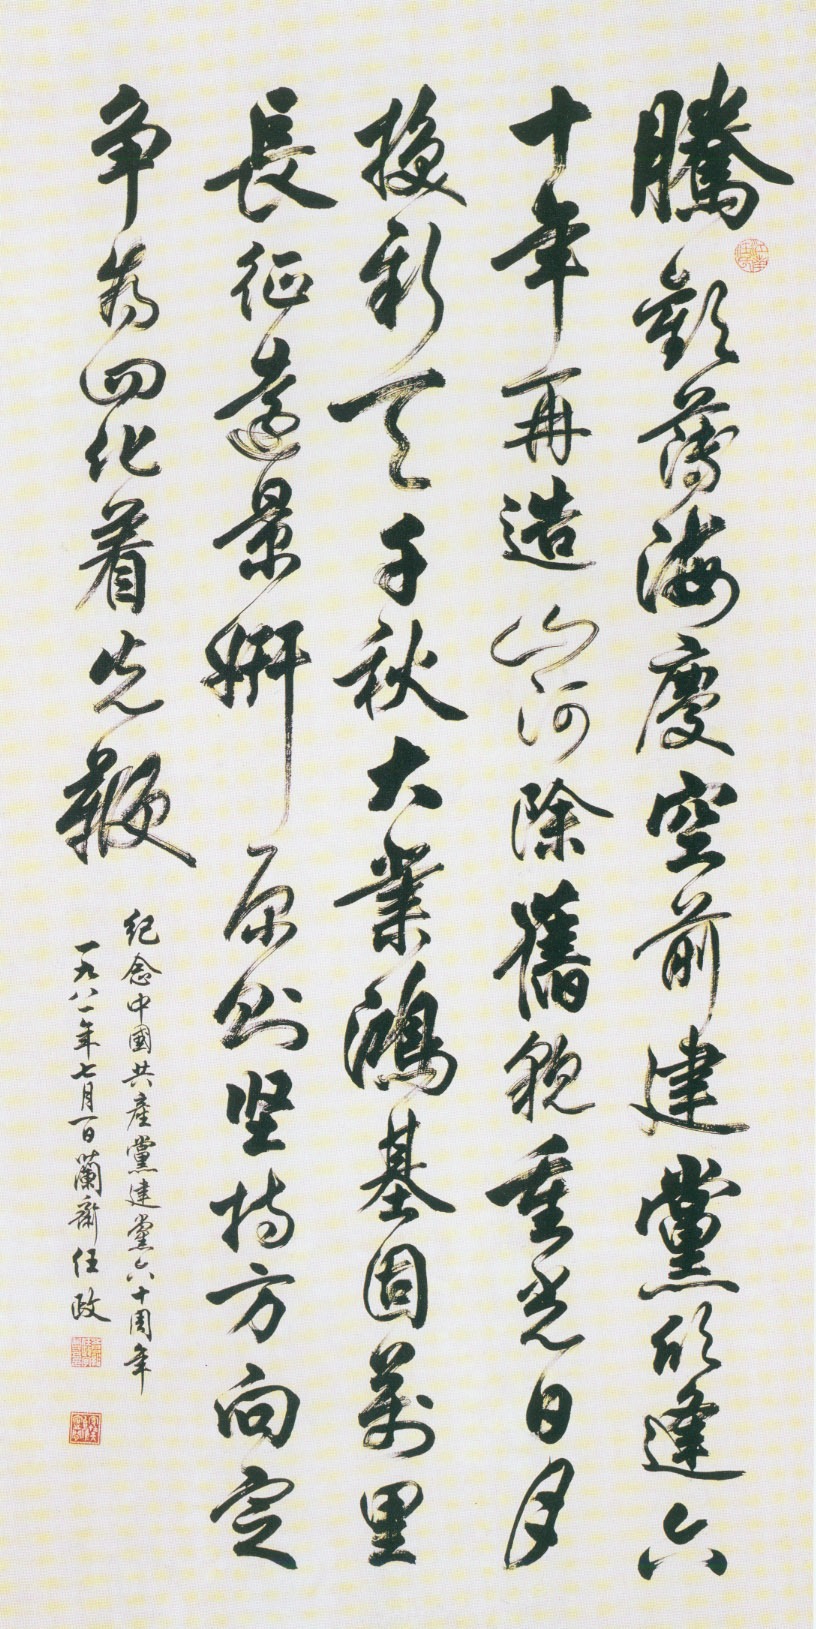 騰歡薄海慶空前建黨欣逢六
十年再造山河除舊貌重光日月
換新天千秋大業鴻基固萬里
長征遠景妍原則坚持方向定
争為四化着先鞭
紀念中國共產黨建黨六十周年
一九八一年七月一日蘭齋任政